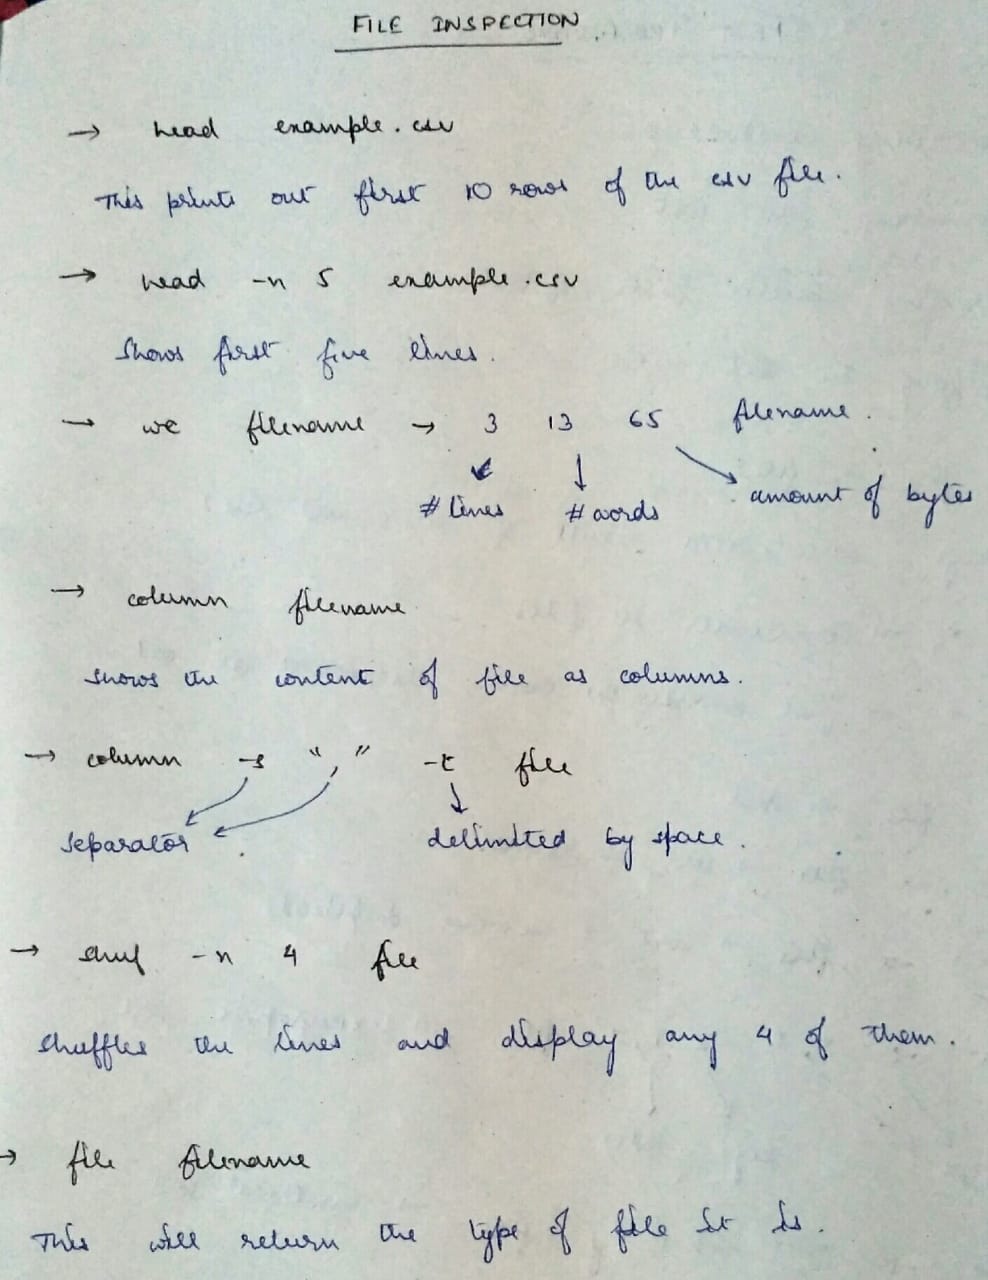 FILE INSPECTION
→ head example.csv
This prints out first 10 rows of the csv file.
→ head -n 5 example.csv
Shows first five lines.
→ wc filename → 3 13 65 filename.
# lines # words amount of bytes
→ column filename
shows the content of file as columns.
→ column -s "," -t file
separator delimited by space.
→ shuf -n 4 file
shuffles the lines and display any 4 of them.
→ file filename
This will return the type of file it is.